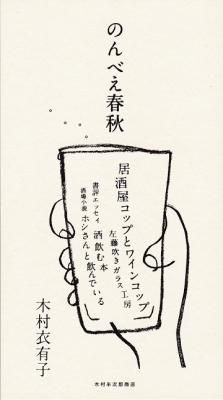 のんべえ春秋
居酒屋コップとワインコップ
左藤吹きガラス工房
酒飲む本
書評エッセイ
酒場小説 ホシさんと飲んでいる
木村衣有子
木村半次郎商店